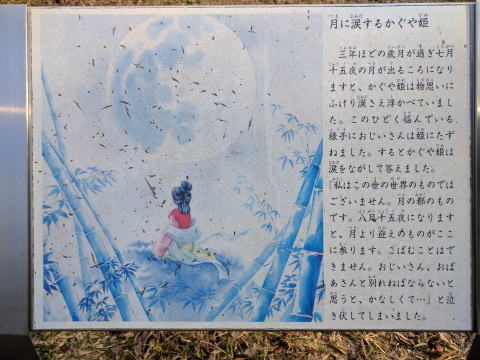 月に涙するかぐや姫
三年ほどの歳月が過ぎ七月
十五夜の月が出るころになり
ますと、かぐや姫は物思いに
ふけり涙さえ浮かべていまし
た。このひどく悩んでいる
様子におじいさんは姫にたず
ねました。するとかぐや姫は
涙をながして答えました。
「私はこの世の世界のものでは
ございません。月の都のもの
です。八月十五夜になります
と、月より迎えのものがここ
に参ります。こばむことはで
きません。おじいさん、おば
あさんと別れねばならないと
思うと、かなしくて…」と泣
き伏してしまいました。